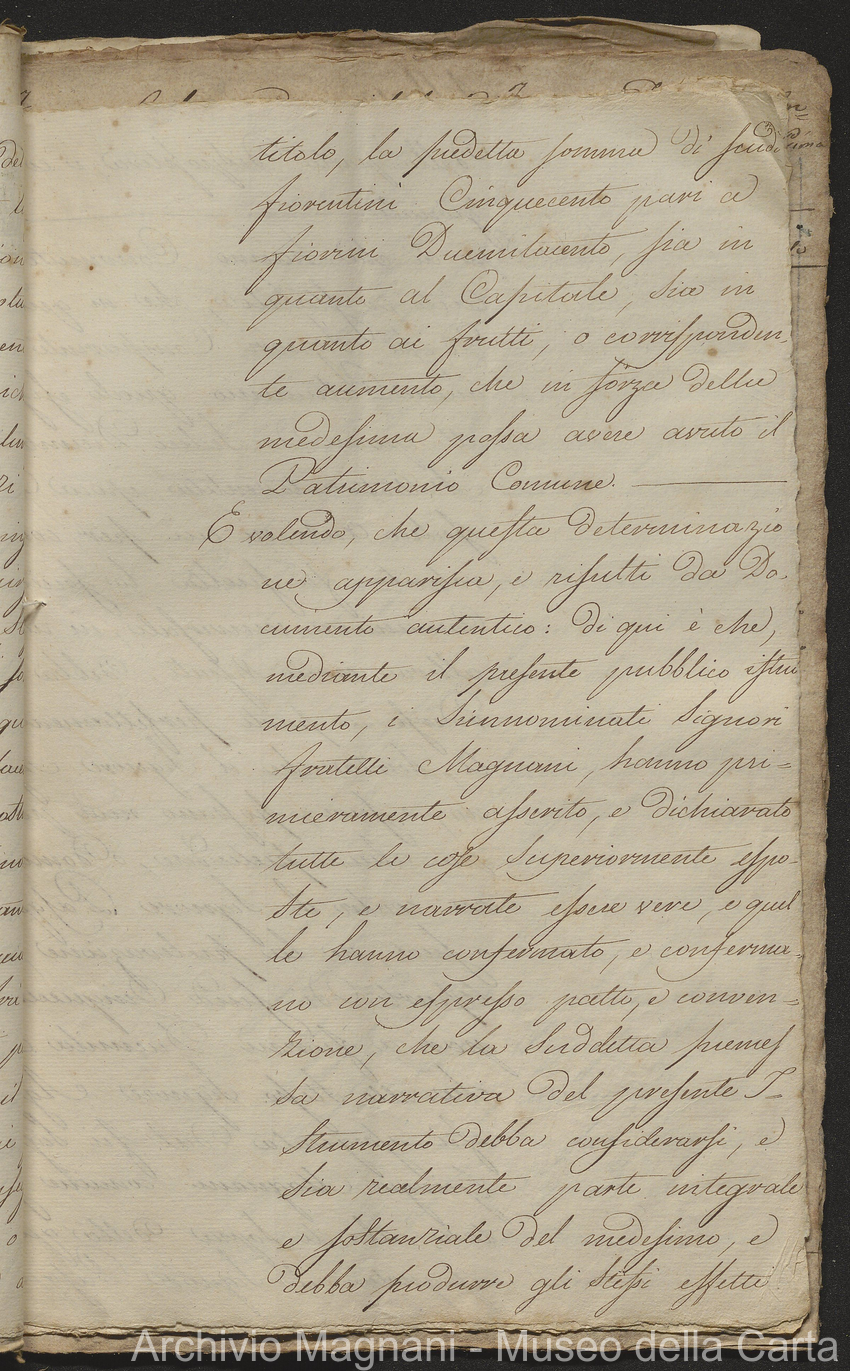 titolo, la predetta somma di scudi
fiorentini Cinquecento pari a
fiorini Duemilacento, sia in
quanto al Capitale, sia in
quanto ai frutti, o corrisponden-
te aumento, che in forza della
medesima possa avere avuto il
Patrimonio Comune.
E volendo, che questa determinazio
ne apparisca, e risulti da Do-
cumento autentico: di qui è che,
mediante il presente pubblico istru
mento, i sunnominati Signori
fratelli Magnani, hanno pri=
mieramente asserito, e dichiarato
tutte le cose superiormente espo-
ste, e narrate essere vere, e quel
le hanno confermato, e conferma-
no con espresso patto, e conven=
zione, che la suddetta premes
sa narrativa del presente I=
strumento debba considerarsi, e
sia realmente parte integrale
e sostanziale del medesimo, e
debba produrre gli stessi effetti
Archivio Magnani - Museo della Carta